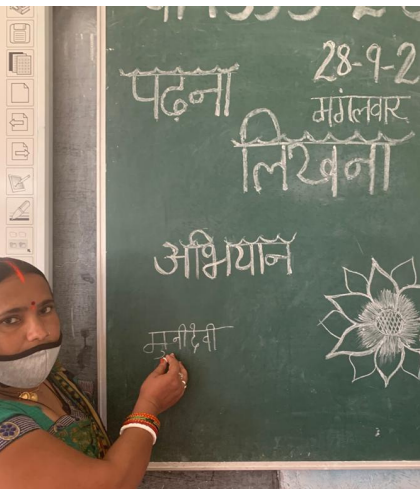 28-9-2
पढ़ना
मंगलवार
लिखना
अभियान
मुनीदेवी